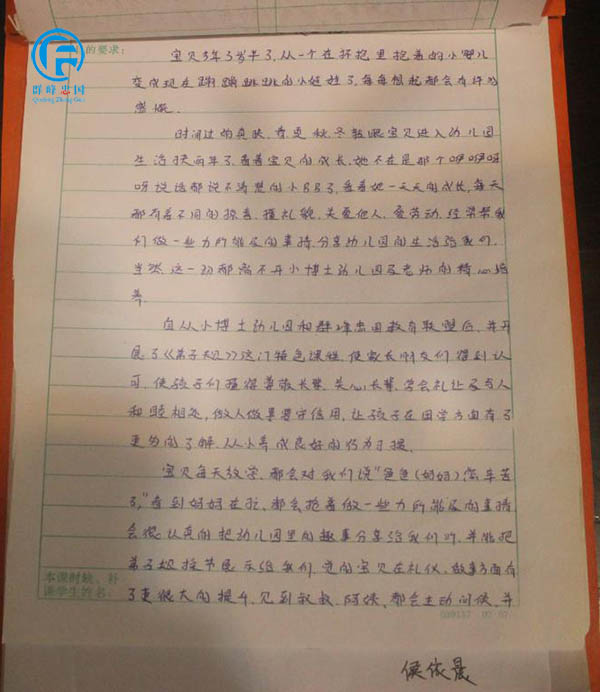 的要求：
群峰忠国
Qunfeng Zhong Guo
宝贝3年了岁半了，从一个在怀抱里抱着的小婴儿
变成现在蹦蹦跳跳的小娃娃了，每每想起都会有许多
感慨。
时间过的真快，春夏秋冬转眼宝贝进入幼儿园
生活快两年了，看着宝贝的成长，她不在是那个咿咿呀
呀说话都说不清楚的小BB了，看着她一天天的成长，每天
都有着不同的惊喜，懂礼貌、关爱他人、爱劳动，经常帮我
们做一些力所能及的事情，分享幼儿园的生活给我们，
当然这一切都离不开小博士幼儿园及老师的精心培
养.
自从小博士幼儿园和群峰忠国教育联盟后，并开
展了《弟子规》这门特色课程，使家长朋友们得到认
可，使孩子们懂得尊敬长辈、关心长辈，学会礼让及与人
和睦相处，做人做事遵守信用，让孩子在国学方面有了
更多的了解，从小养成良好的行为习惯.
宝贝每天放学，都会对我们说“爸爸（妈妈）您辛苦
了，”看到妈妈在忙，都会抢着做一些力所能及的事情
会很认真的把幼儿园里的趣事分享给我们听，并能把
弟子规操节展示给我们，觉的宝贝在礼仪、做事方面有
了更很大的提升，见到叔叔、阿姨，都会主动问候，并
本课时缺、补
课学生的名：
侯依晨